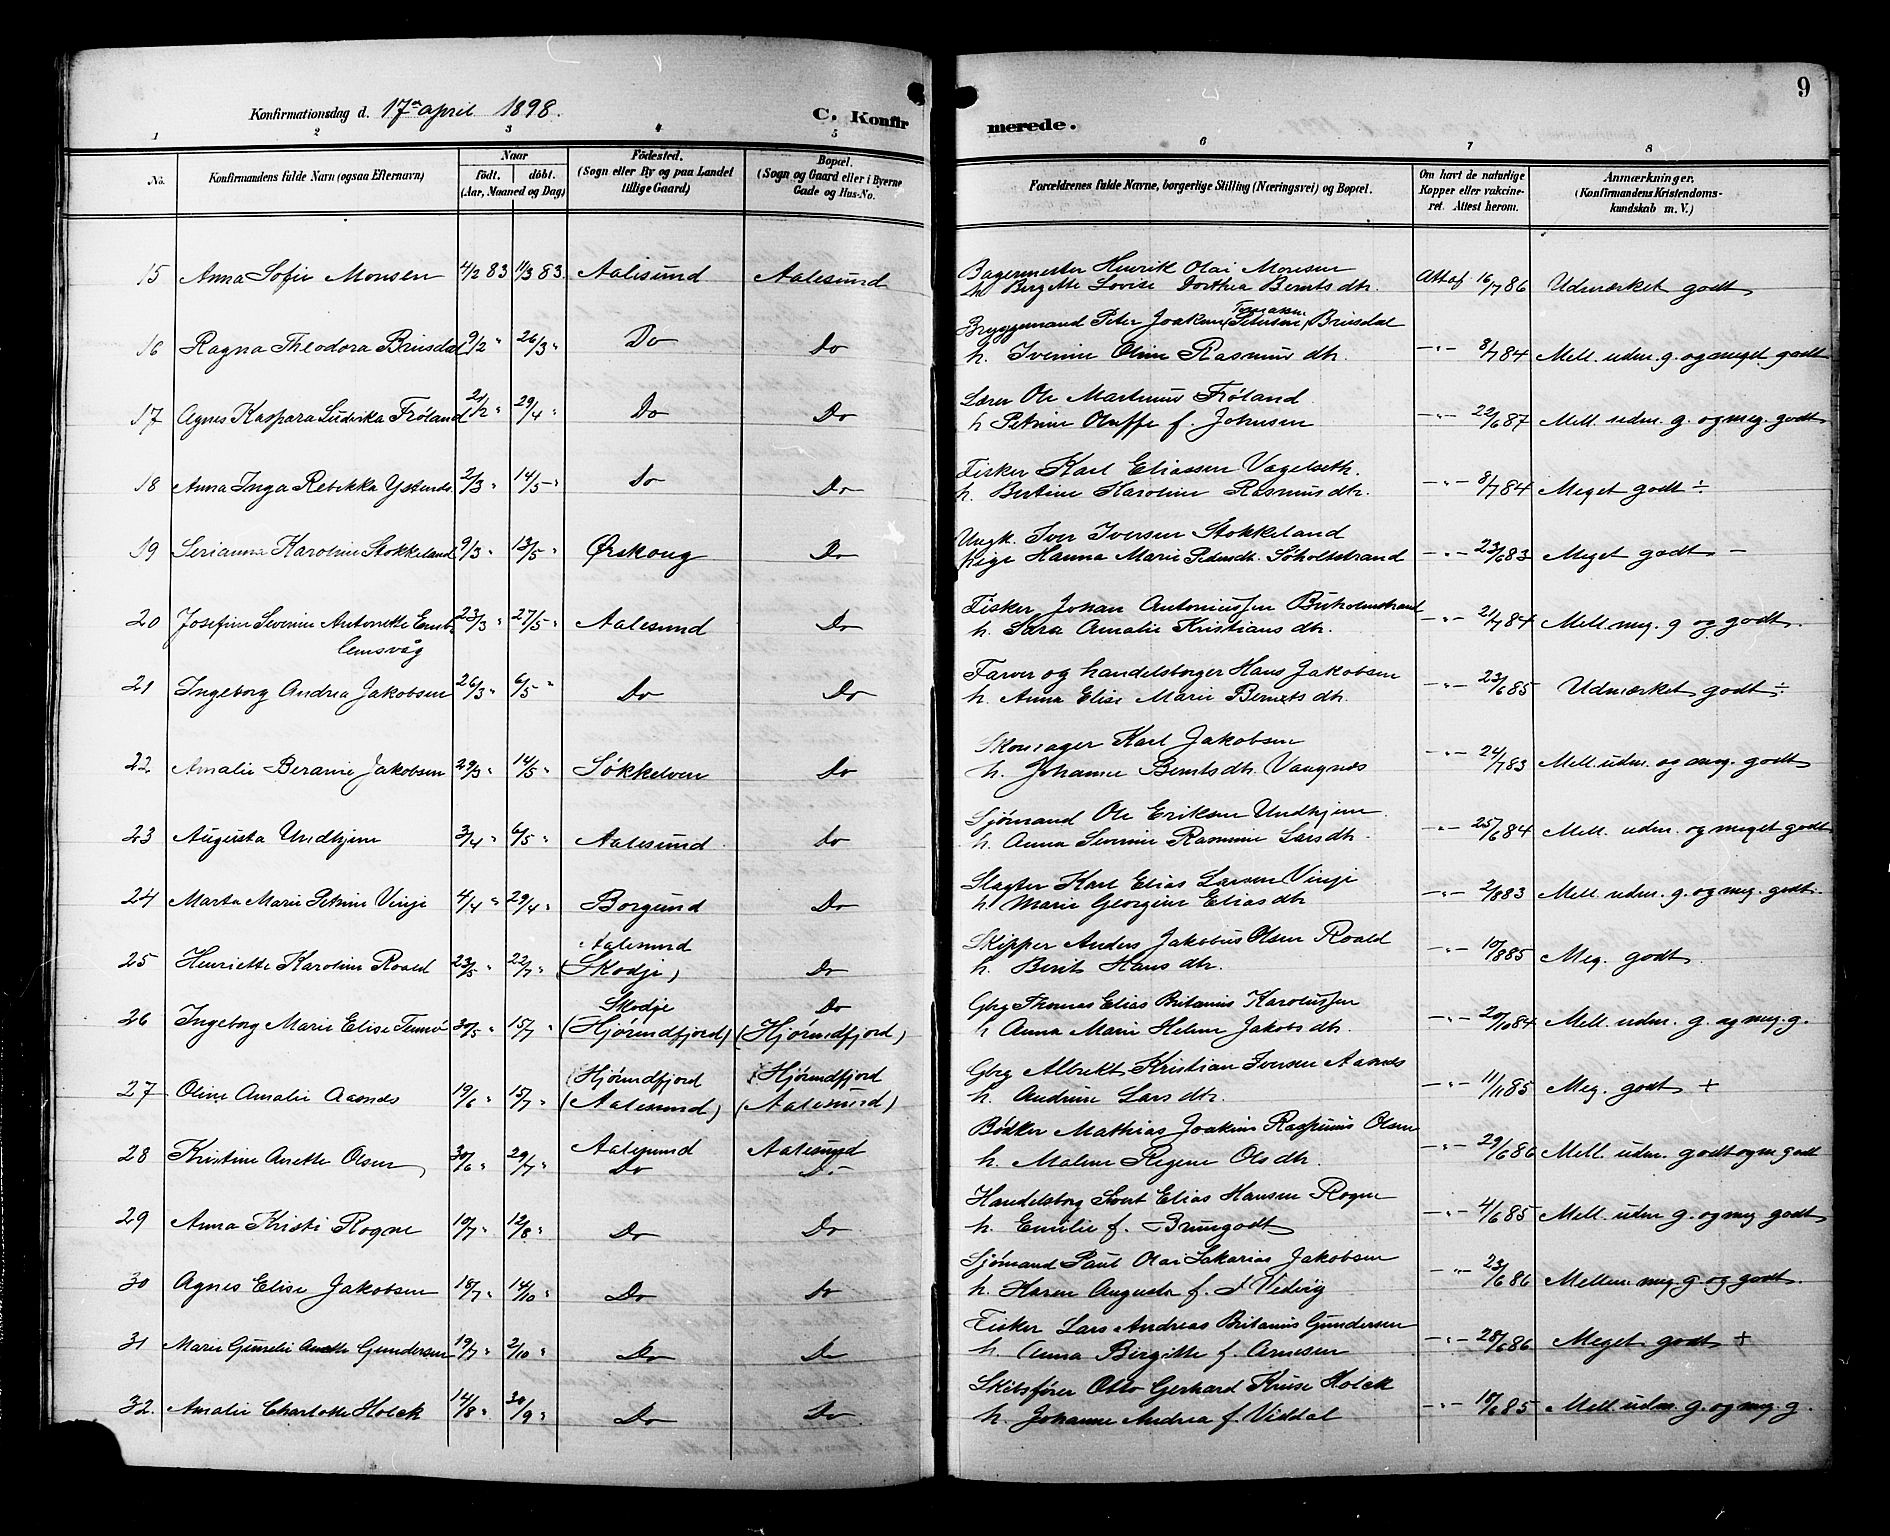 Konfirmationsdag d. 17de april 1898.
C. Konfirmerede.
9
1 2 3 4 5 6 7 8
No.
Konfirmandens fulde Navn (ogsaa Efternavn)
Naar
født. døbt.
(Aar, Maaned og Dag)
Fødested.
(Sogn eller By og paa Landet
tillige Gaard)
Bopæl.
(Sogn og Gaard eller i Byerne
Gade og Hus-No.
Forældrenes fulde Navne, borgerlige Stilling (Næringsvei) og Bopæl.
Om havt de naturlige
Kopper eller vakcine-
ret. Attest herom.
Anmærkninger,
(Konfirmandens Kristendoms-
kundskab m. V.)
15 Anna Sofie Monsen 4/2 83 11/3 83. Aalesund Aalesund
Bagermester Henrik Olai Monsen
h. Bergitte Lovise Dorthea Berntsdtr. Att af 16/7 86 Udmærket godt
16 Ragna Theodora Brusdal 9/2 " 26/3 " Do Do
Bryggemand Peter Joakim Petersen Brusdal
h. Iverine Oline Rasmusdtr. —"— 8/7 84 Mell. udm. g. og meget godt
17 Agnes Kaspara Ludvika Frøland 21/2 " 29/4 " Do Do
Lærer Ole Martinus Frøland
h Petrine Oluffe f. Johnsen —"— 22/6 87 Mell. udm. g. og meg. godt
18 Anna Inga Rebekka Ystenes 2/3 " 14/5 " Do Do
Fisker Karl Eliassen Vegelseth.
h. Bertine Karoline Rasmusdtr. —"— 8/7 84 Meget godt ÷
19 Serianna Karoline Stokkeland 9/3 " 13/5 " Ørskoug Do
Ungk. Iver Iversen Stokkeland
Pige Hanna Marie Pedersdtr. Søholtstrand —"— 23/6 83 Meget godt —
20 Josefine Severine Antonette Emb- 23/3 " 27/5 " Aalesund Do
lemsvåg
Fisker Johan Antoniussen Buholmstrand
h. Sara Amalie Kristiansdtr. —"— 21/7 84 Mell. meg. g og godt.
21 Ingeborg Andrea Jakobsen 26/3 " 6/5 " Do Do
Farver og handelsborger Hans Jakobsen
h. Anna Elise Marie Berntsdtr. —"— 23/6 85 Udmærket godt ÷
22 Amalie Beranie Jakobsen 29/3 " 14/5 " Søkkelven Do
Skomager Karl Jakobsen
h. Johanne Berntsdtr. Vangnes —"— 24/7 83 Mell. udm. og meg. godt
23 Augusta Undhjem 3/4 " 6/5 " Aalesund Do
Sjømand Ole Eriksen Undhjem
h. Anna Severine Rasmine Larsdtr. —"— 25/6 84 Mell. udm. og meget godt
24 Marta Marie Petrine Vinje 4/4 " 29/4 " Borgund Do
Slagter Karl Elias Larsen Vinje
h. Marie Georgine Eliasdtr —"— 2/8 83 Mell. udm. g. og meg. godt.
25 Henriette Karoline Roald 23/5 " 22/7 " Aalesund
(Skodje) Do
Skipper Anders Jakobus Olsen Roald
h. Berit Hansdtr. —"— 10/8 85 Meg. godt.
26 Ingeborg Marie Elise 30/5 " 15/7 " Skodje
(Hjørundfjord) Do
(Hjørundfjord)
Gbrg Thomas Elias Britanus Karolussen
h Anna Marie Helene Jakobsdtr. —"— 20/10 84 Mell. udm. g. og meg. g.
27 Oline Amalie Aasnes 19/6 " 15/7 " (Hjørundfjord
(Aalesund) (Hjørundfjord
(Aalesund)
Gbrg Albrekt Kristian Iversen Aasnes
h. Andrine Larsdtr. —"— 11/11 85 Meg. godt +
28 Kristine Anette Olsen 30/6 " 29/7 " Aalesund
Do Aalesund
Do
Bødker Mathias Joakim Rasmus Olsen
h. Malene Regine Olsdtr. —"— 29/6 86 Mell. udm. godt og m. godt
29 Anna Kristi Rogne 10/7 " 12/8 " Do Do
Handelsborg Sivert Elias Hansen Rogne
h. Emilie f. Brungodt —"— 4/6 85 Mell. udm g. og meg godt
30 Agnes Elise Jakobsen 18/7 " 14/10 " Do Do
Sjømand Paul Olai Sakarias Jakobsen
h. Karen Augusta f. Vedvig —"— 23/6 86 Mellem meg. g. og godt.
31 Marie Gurelie Anette Gundersen 19/7 " 2/10 " Do Do
Fisker Lars Andreas Britanus Gundersen
h Anna Birgitte f. Arnesen —"— 28/6 86 Meget godt +
32. Amalie Charlotte Holck 14/8 " 30/9 " Do Do
Skibsfører Otto Gerhard Kruse Holck
h. Johanne Andrea f. Viddal —"— 18/6 85 Mell. udm. g. og meg. g.